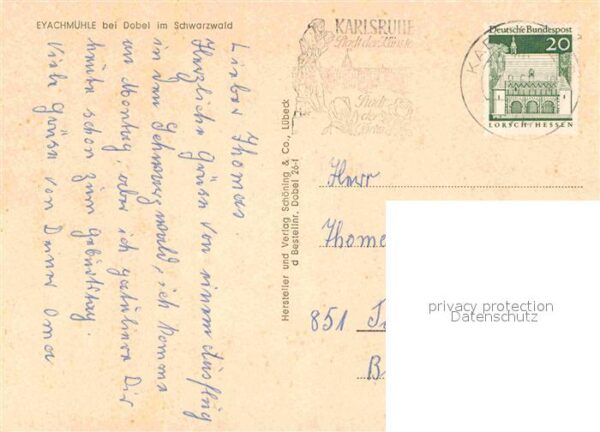 EYACHMÜHLE bei Dobel im Schwarzwald
Lieber Thomas.
Herzliche Grüße von einem Ausflug
in den Schwarzwald, ich komme
am Montag, aber ich gratuliere Dir
heute schon zum Geburtstag.
Viele Grüße von Deiner Oma
Hersteller und Verlag Schöning & Co., Lübeck
d Bestellnr. Dobel 26-f
KARLSRUHE
Stadt der Künste
Stadt
der
Deutsche Bundespost
20
LORSCH/HESSEN
Herr
Thoma
851
B
privacy protection
Datenschutz